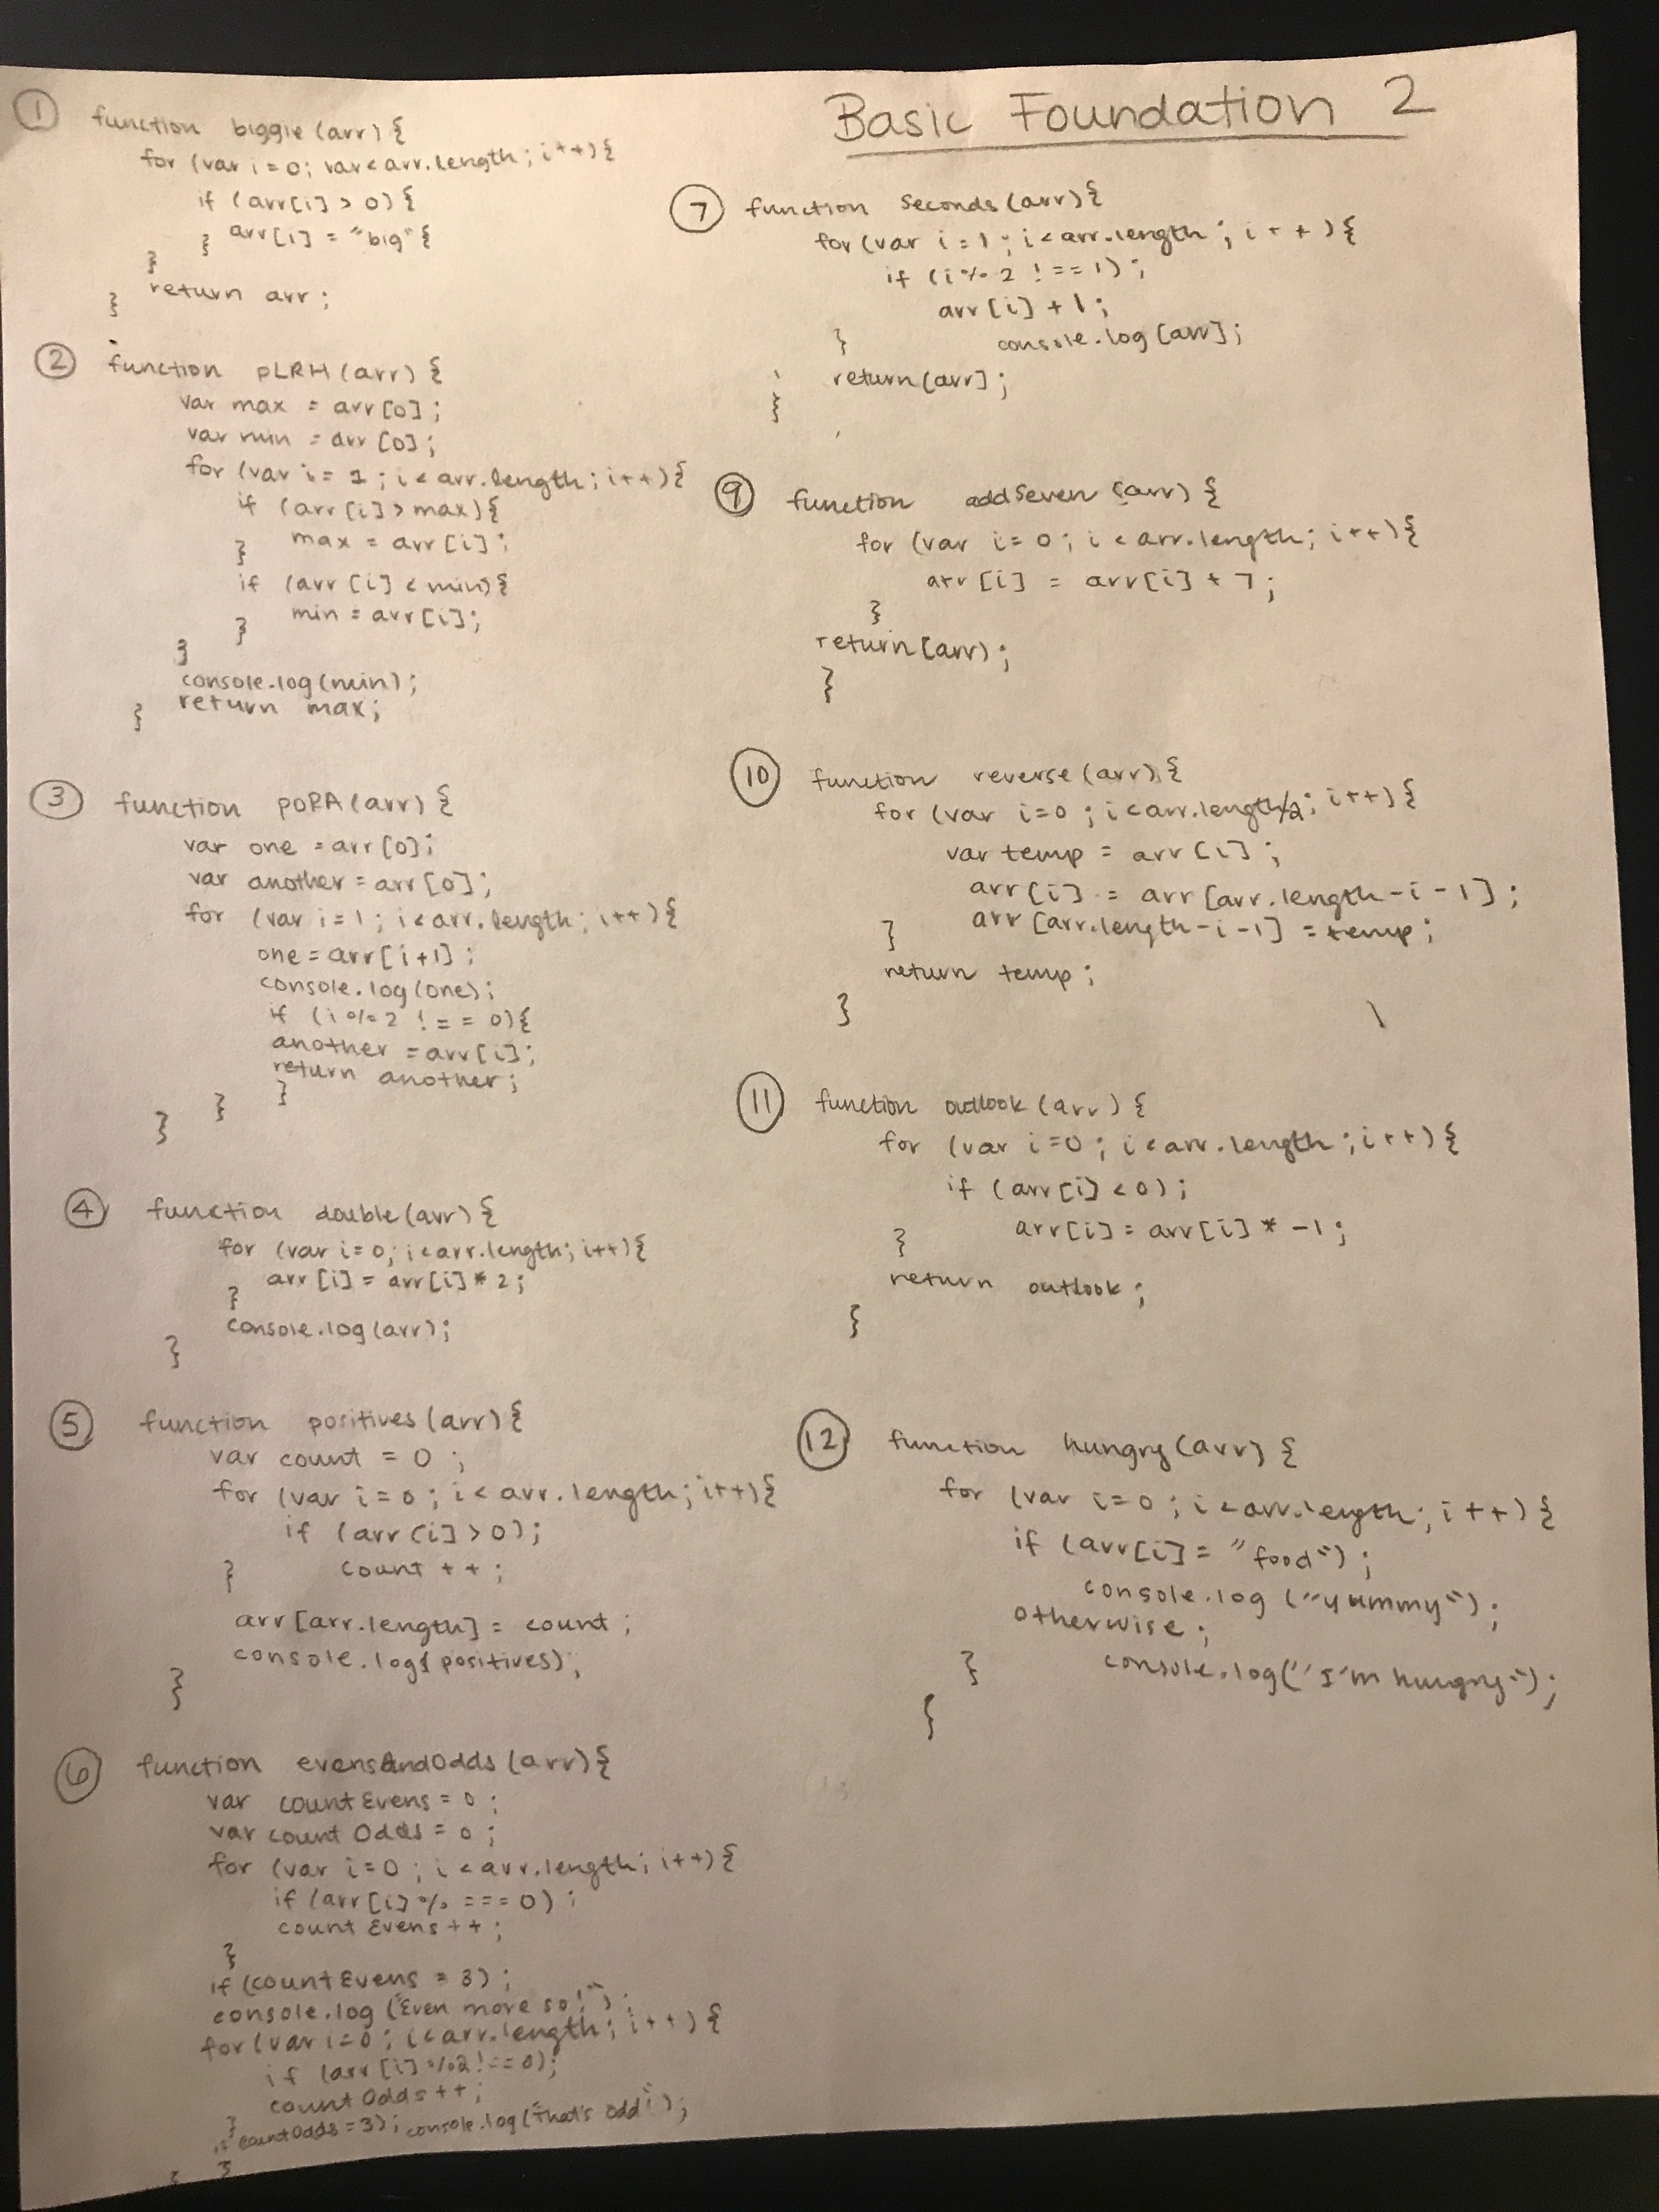 Basic Foundation 2
① function biggie (arr) {
for (var i = 0; var < arr.length; i++) {
if (arr[i] > 0) {
arr[i] = "big" {
}
}
return arr;
}
② function pLRH (arr) {
var max = arr[0];
var min = arr[0];
for (var i = 1; i < arr.length; i++) {
if (arr[i] > max) {
max = arr[i];
}
if (arr[i] < min) {
min = arr[i];
}
}
console.log(min);
return max;
}
③ function poRA (arr) {
var one = arr[0];
var another = arr[0];
for (var i = 1; i < arr.length; i++) {
one = arr[i+1];
console.log(one);
if (i % 2 !== 0) {
another = arr[i];
return another;
}
}
}
④ function double (arr) {
for (var i = 0; i < arr.length; i++) {
arr[i] = arr[i] * 2;
}
console.log(arr);
}
⑤ function positives (arr) {
var count = 0;
for (var i = 0; i < arr.length; i++) {
if (arr[i] > 0);
count ++;
}
arr[arr.length] = count;
console.log{positives),
}
⑥ function evensAndOdds (arr) {
var countEvens = 0;
var countOdds = 0;
for (var i = 0; i < arr.length; i++) {
if (arr[i] % === 0);
countEvens ++;
}
if (countEvens = 3);
console.log ("Even more so!");
for (var i = 0; i < arr.length; i++) {
if (arr[i] % 2 !== 0);
countOdds ++;
}
countOdds = 3); console.log("That's odd!");
} }
⑦ function seconds (arr) {
for (var i = 1; i < arr.length; i++) {
if (i % 2 !== 1);
arr[i] + 1;
console.log[arr];
}
return[arr];
}
⑨ function addSeven (arr) {
for (var i = 0; i < arr.length; i++) {
arr[i] = arr[i] + 7;
}
return[arr);
}
⑩ function reverse (arr) {
for (var i = 0; i < arr.length/2; i++) {
var temp = arr[i];
arr[i] = arr[arr.length-i-1];
arr[arr.length-i-1] = temp;
}
return temp;
}
⑪ function outlook (arr) {
for (var i = 0; i < arr.length; i++) {
if (arr[i] < 0);
arr[i] = arr[i] * -1;
}
return outlook;
}
⑫ function hungry (arr) {
for (var i = 0; i < arr.length; i++) {
if (arr[i] = "food");
console.log ("yummy");
otherwise;
console.log("I'm hungry");
}
{